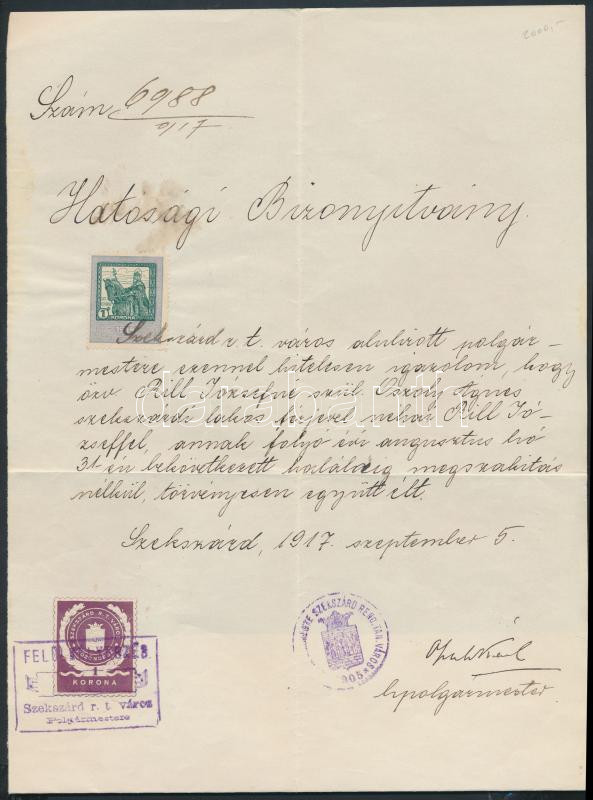 2000,-
Szám 6988
917
Hatósági Bizonyitvány.
1 KORONA
Szekszárd r. t. város alulirott polgár-
mestere ezennel hitelesen igazolom, hogy
özv Rill Józsefné szül. Ágnes
szekszárdi lakos férjével néhai Rill Jó-
zseffel, annak folyó évi augusztus hó
31-én bekövetkezett haláláig megszakitás
nélkül, törvényesen együtt élt.
Szekszárd, 1917. szeptember 5.
SZEKSZÁRD R. T. VÁROS
1
KORONA
Szekszárd r. t. város
Polgármestere
SZEKSZÁRD REND. TAN. VÁROS
905
h. polgármester
darabanth